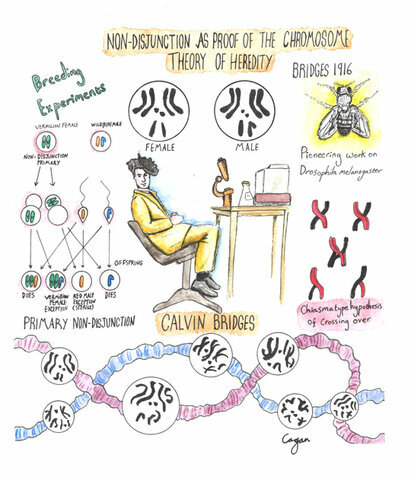 NON-DISJUNCTION AS PROOF OF THE CHROMOSOME
THEORY OF HEREDITY
Breeding
Experiments
BRIDGES 1916
VERMILION FEMALE
WILDTYPE MALE
NON-DISJUNCTION
PRIMARY
FEMALE
MALE
Pioneering work on
Drosophila melanogaster
OFFSPRING
DIES
VERMILION
FEMALE
EXCEPTION
RED MALE
EXCEPTION
(STERILE)
DIES
Chiasmatype hypothesis
of Crossing over
PRIMARY NON-DISJUNCTION
CALVIN BRIDGES
Cagan